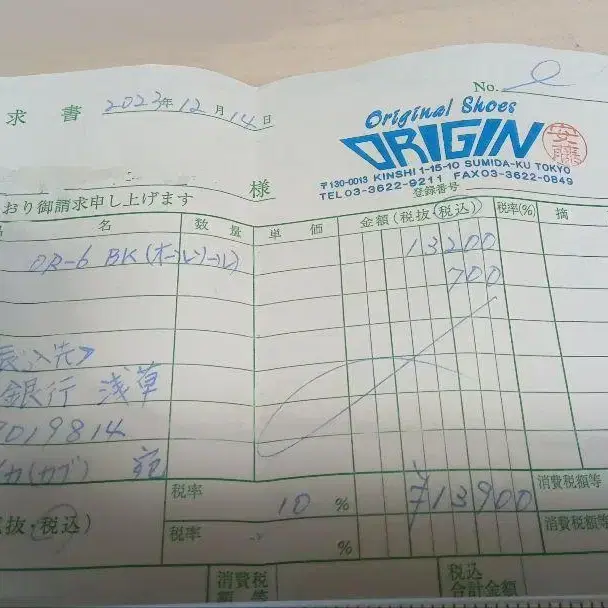 求書 2023年 12月 14日
No. 2
Original Shoes
ORIGIN
安藤
〒130-0013 KINSHI 1-15-10 SUMIDA-KU TOKYO
TEL 03-3622-9211 FAX 03-3622-0849
登録番号
様
おり御請求申し上げます
名 数量 単価 金額(税抜・税込) 税率(%) 摘
OR-6 BK(オールソール) 13200
700
振込先>
銀行 浅草
9019814
カ(カブ) 宛
税率 10 % ¥13900 消費税額等
税抜・税込)
税率 % 消費税額等
消費税額等 税込合計金額